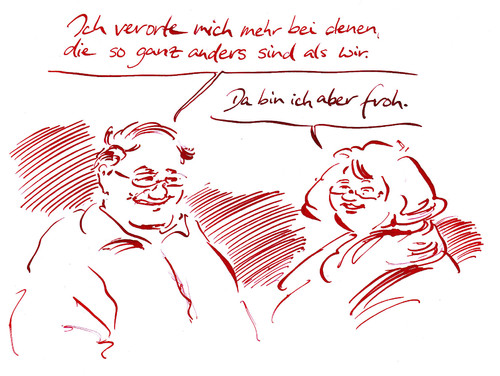 Ich verorte mich mehr bei denen,
die so ganz anders sind als wir.
Da bin ich aber froh.